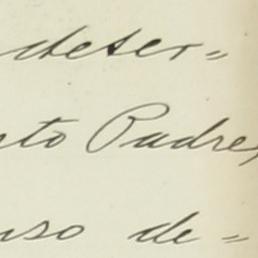 deter=
nto Padre,
uso de=